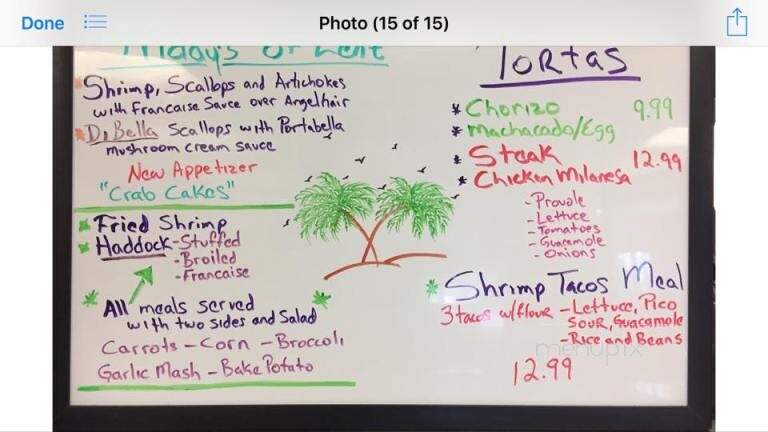 Done
Photo (15 of 15)
Fridays of Lent
* Shrimp, Scallops and Artichokes
with Francaise Sauce over Angelhair
* DiBella Scallops with Portabella
mushroom cream sauce
New Appetizer
"Crab Cakes"
* Fried Shrimp
* Haddock - Stuffed
- Broiled
- Francaise
* All meals served *
with two sides and Salad
Carrots - Corn - Broccoli
Garlic Mash - Bake Potato
Tortas
* Chorizo 9.99
* Machacado/Egg
* Steak 12.99
* Chicken Milanesa
- Provole
- Lettuce
- Tomatoes
- Guacamole
- Onions
* Shrimp Tacos Meal
3 tacos w/flour - Lettuce, Pico
Sour, Guacamole
- Rice and Beans
12.99
menupix